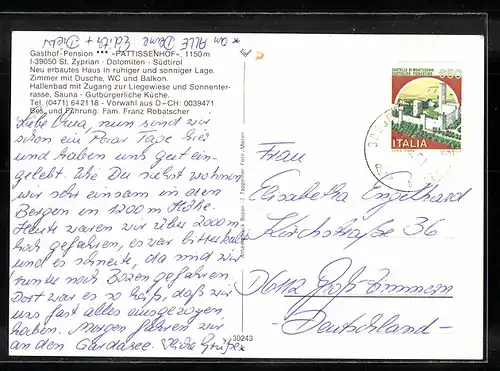 * an ALLE Deine Edith + Dieter
Gasthof-Pension *** »PATTISSENHOF«, 1150 m
I-39050 St. Zyprian · Dolomiten · Südtirol
Neu erbautes Haus in ruhiger und sonniger Lage.
Zimmer mit Dusche, WC und Balkon.
Hallenbad mit Zugang zur Liegewiese und Sonnenter-
rasse, Sauna - Gutbürgerliche Küche.
Tel. (0471) 642118 - Vorwahl aus D+CH: 0039471
Bes. und Führung: Fam. Robatscher
Liebe Oma, nun sind wir
schon ein Paar Tage hier
und haben uns gut ein-
gelebt. Wie Du siehst wohnen
wir sehr einsam in den
Bergen in 1200 m Höhe.
Heute waren wir über 2000 m
hoch gefahren, es war bitterkalt
und es schneite, da sind wir
runter nach Bozen gefahren.
Dort war es so heiß, daß wir
uns fast alles ausgezogen
haben. Morgen fahren wir
an den Gardasee. Liebe Grüße *
Tappeiner Foto - Meran
30243
CASTELLO DI MONTECCHIO
CASTIGLION FIORENTINO
650
ITALIA
Frau
Elisabetha Engelhard
Kirchstraße 36
D6112 Groß-Zimmern
- Deutschland -